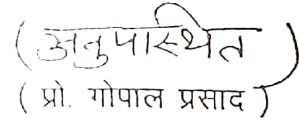 (अनुपास्थित)
(प्रो. गोपाल प्रसाद)